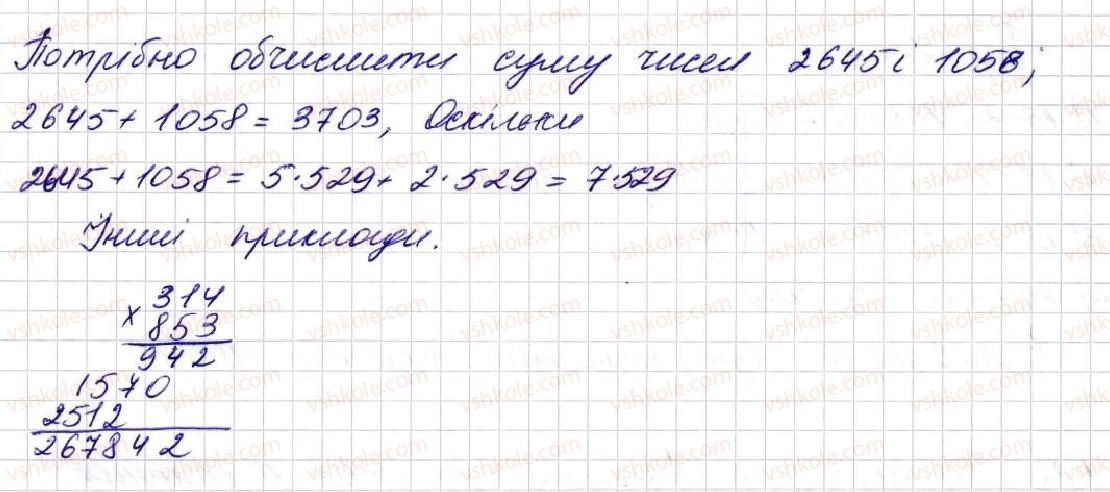 Потрібно обчислити суму чисел 2645 і 1058;
2645 + 1058 = 3703, Оскільки
2645 + 1058 = 5·529 + 2·529 = 7·529
Інші приклади.
314
× 853
942
1570
2512
267842